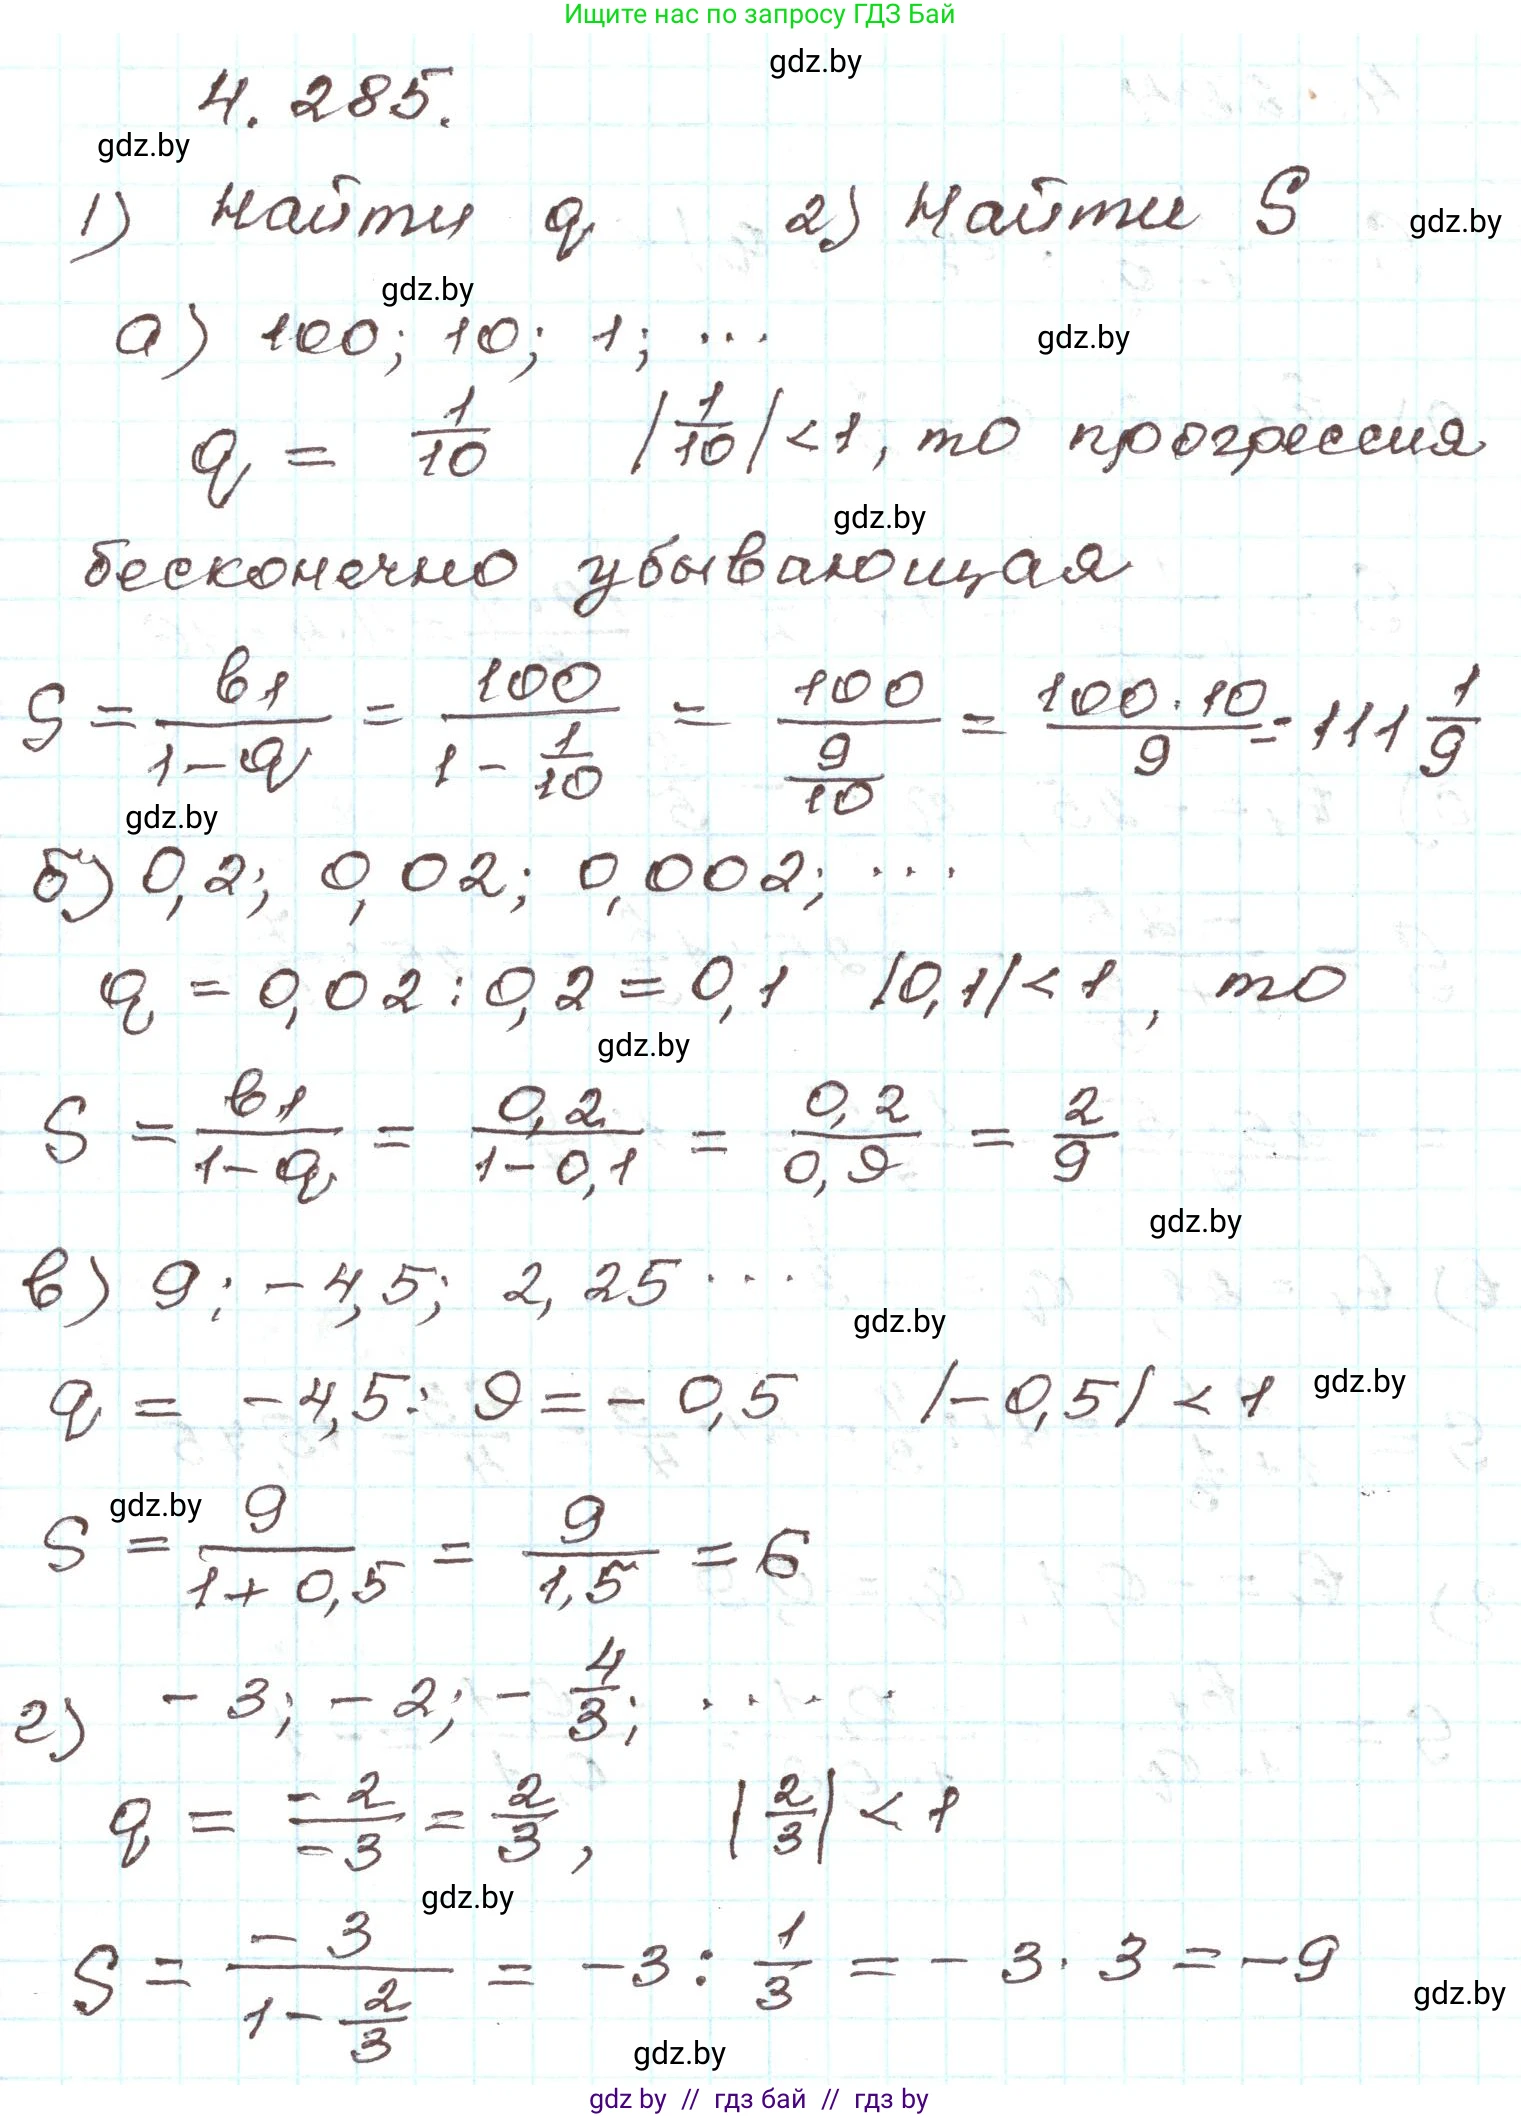 Ищите нас по запросу ГДЗ Бай
gdz.by
4.285.
gdz.by
1) Найти q 2) Найти S gdz.by
gdz.by
а) 100; 10; 1; ... gdz.by
q = 1/10 |1/10| < 1, то прогрессия
gdz.by
бесконечно убывающая
S = b1/(1-q) = 100/(1 - 1/10) = 100/(9/10) = 100·10/9 = 111 1/9
gdz.by
б) 0,2; 0,02; 0,002; ...
q = 0,02 : 0,2 = 0,1 |0,1| < 1, то
gdz.by
S = b1/(1-q) = 0,2/(1-0,1) = 0,2/0,9 = 2/9
gdz.by
в) 9; -4,5; 2,25 ...
gdz.by
q = -4,5 : 9 = -0,5 |-0,5| < 1 gdz.by
gdz.by
S = 9/(1+0,5) = 9/1,5 = 6
г) -3; -2; -4/3; .....
q = -2/-3 = 2/3, |2/3| < 1
gdz.by
S = -3/(1 - 2/3) = -3 : 1/3 = -3·3 = -9
gdz.by
gdz.by
gdz by // гдз бай // гдз by